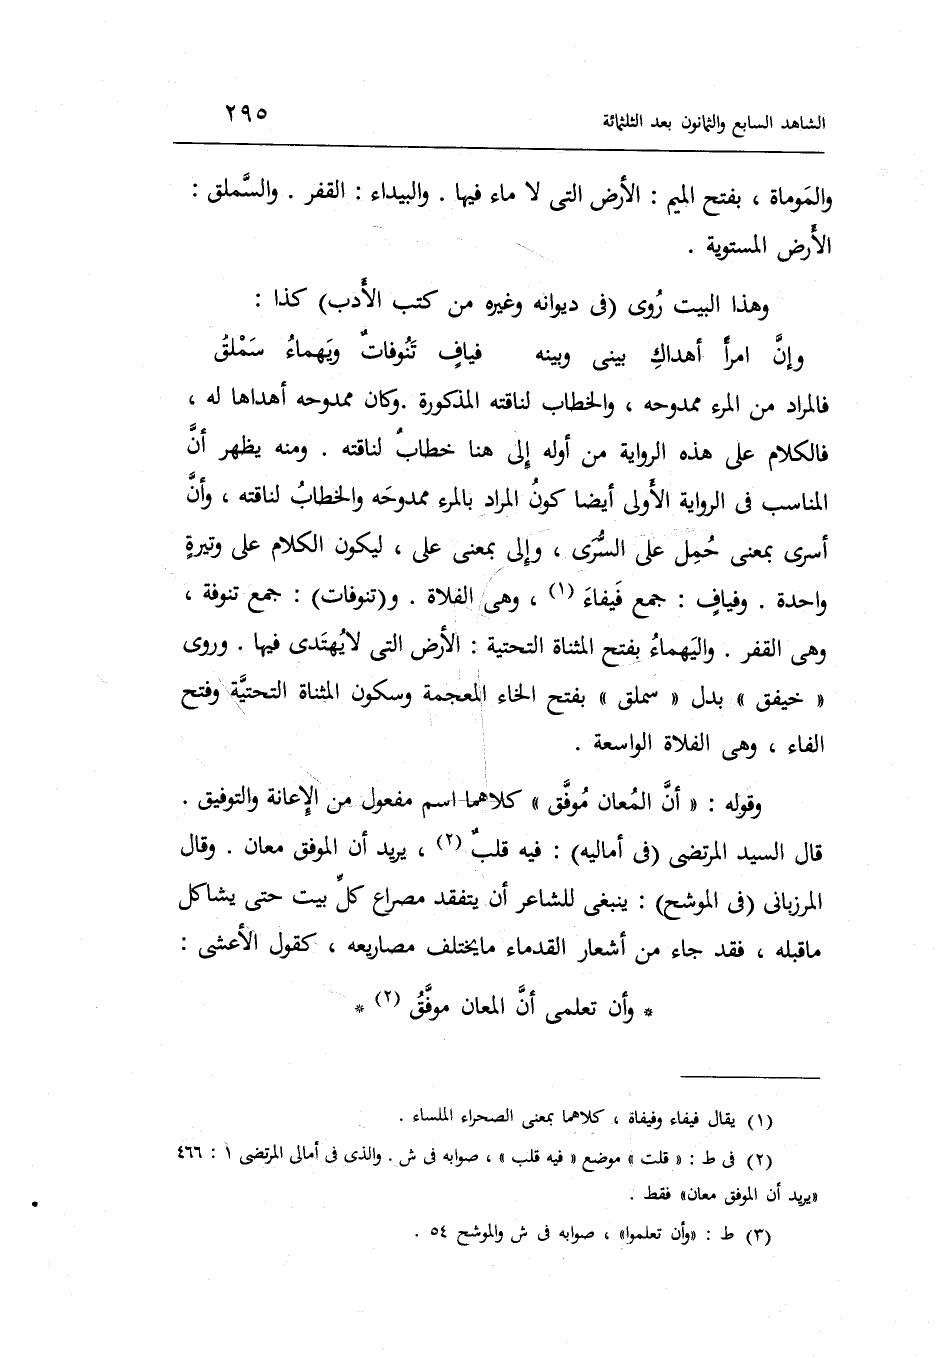 الشاهد السابع والثمانون بعد الثلثمائة ٢٩٥
والمَوماة ، بفتح الميم : الأَرض التى لا ماء فيها . والبيداء : القفر . والسَّملق :
الأَرض المستوية .
وهذا البيت رُوى (فى ديوانه وغيره من كتب الأَدب) كذا :
وإنَّ امرأً أهداكِ بينى وبينه فيافٍ تَنُوفاتٌ ويَهماءُ سَمْلقُ
فالمراد من المرء ممدوحه ، والخطاب لناقته المذكورة .وكان ممدوحه أهداها له ،
فالكلام على هذه الرواية من أوله إلى هنا خطابٌ لناقته . ومنه يظهر أنَّ
المناسب فى الرواية الأَولى أيضا كونُ المراد بالمرء ممدوحَه والخطابُ لناقته ، وأنَّ
أسرى بمعنى حُمِل على السُّرَى ، وإلى بمعنى على ، ليكون الكلام على وتيرةٍ
واحدة . وفيافٍ : جمع فَيفاءَ (١) ، وهى الفلاة . و(تنوفات) : جمع تنوفة ،
وهى القفر . واليَهماءُ بفتح المثناة التحتية : الأَرض التى لايُهتَدى فيها . وروى
« خيفق » بدل « سملق » بفتح الخاء المعجمة وسكون المثناة التحتيَّة وفتح
الفاء ، وهى الفلاة الواسعة .
وقوله : « أنَّ المُعان مُوفَّق » كلاهما اسم مفعول من الإعانة والتوفيق .
قال السيد المرتضى (فى أماليه) : فيه قلبٌ (٢) ، يريد أن الموفق معان . وقال
المرزبانى (فى الموشح) : ينبغى للشاعر أن يتفقد مصراع كلِّ بيت حتى يشاكل
ماقبله ، فقد جاء من أشعار القدماء مايختلف مصاريعه ، كقول الأَعشى :
* وأن تعلمى أنَّ المعان موفَّقُ (٢) *
(١) يقال فيفاء وفيفاة ، كلاهما بمعنى الصحراء الملساء .
(٢) فى ط : « قلت » موضع « فيه قلب » ، صوابه فى ش . والذى فى أمالى المرتضى ١ : ٤٦٦
«يريد أن الموفق معان» فقط .
(٣) ط : «وأن تعلموا» ، صوابه فى ش والموشح ٥٤ .